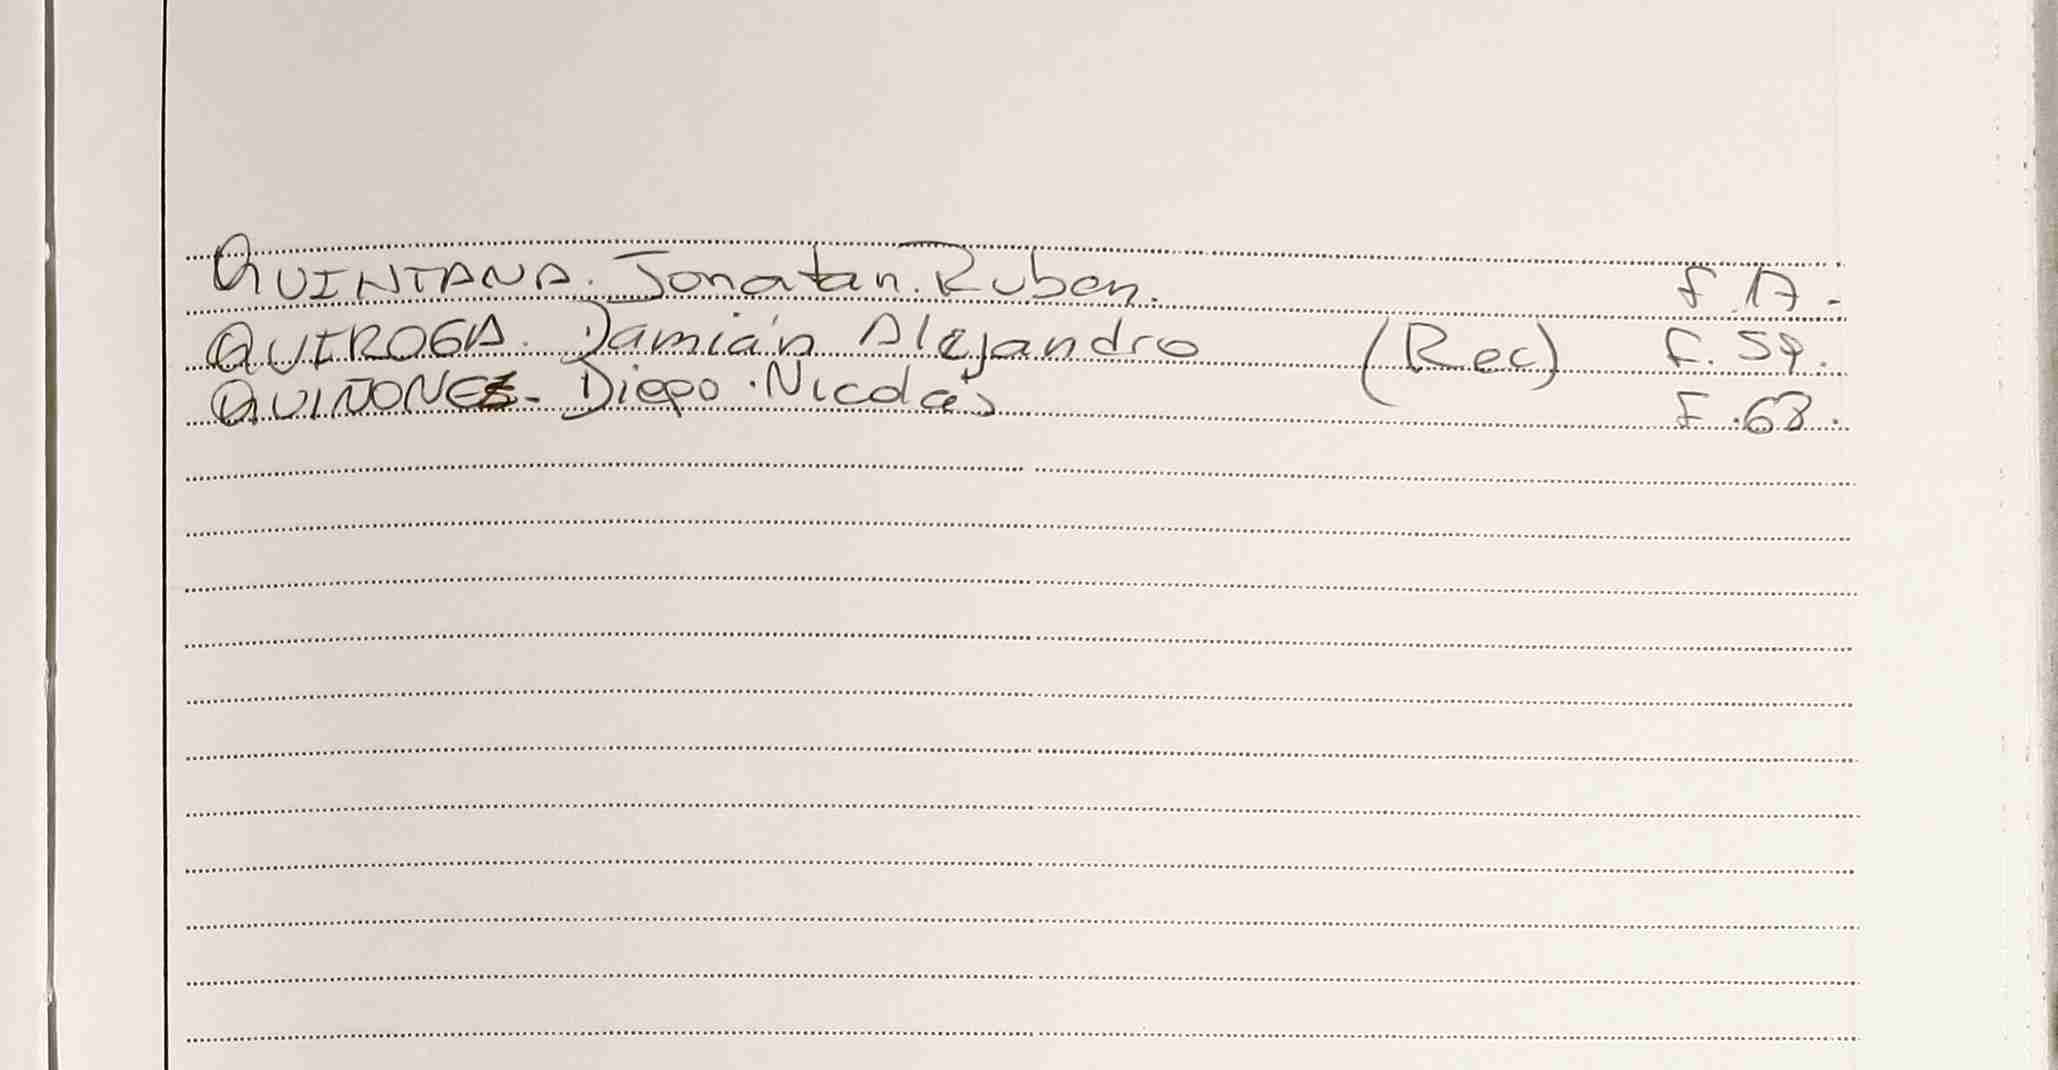 QUINTANA. Jonatan. Ruben. F. 17.
QUIROGA. Damián Alejandro (Rec) F. 59.
QUIÑONEZ- Diego. Nicolás F. 63.